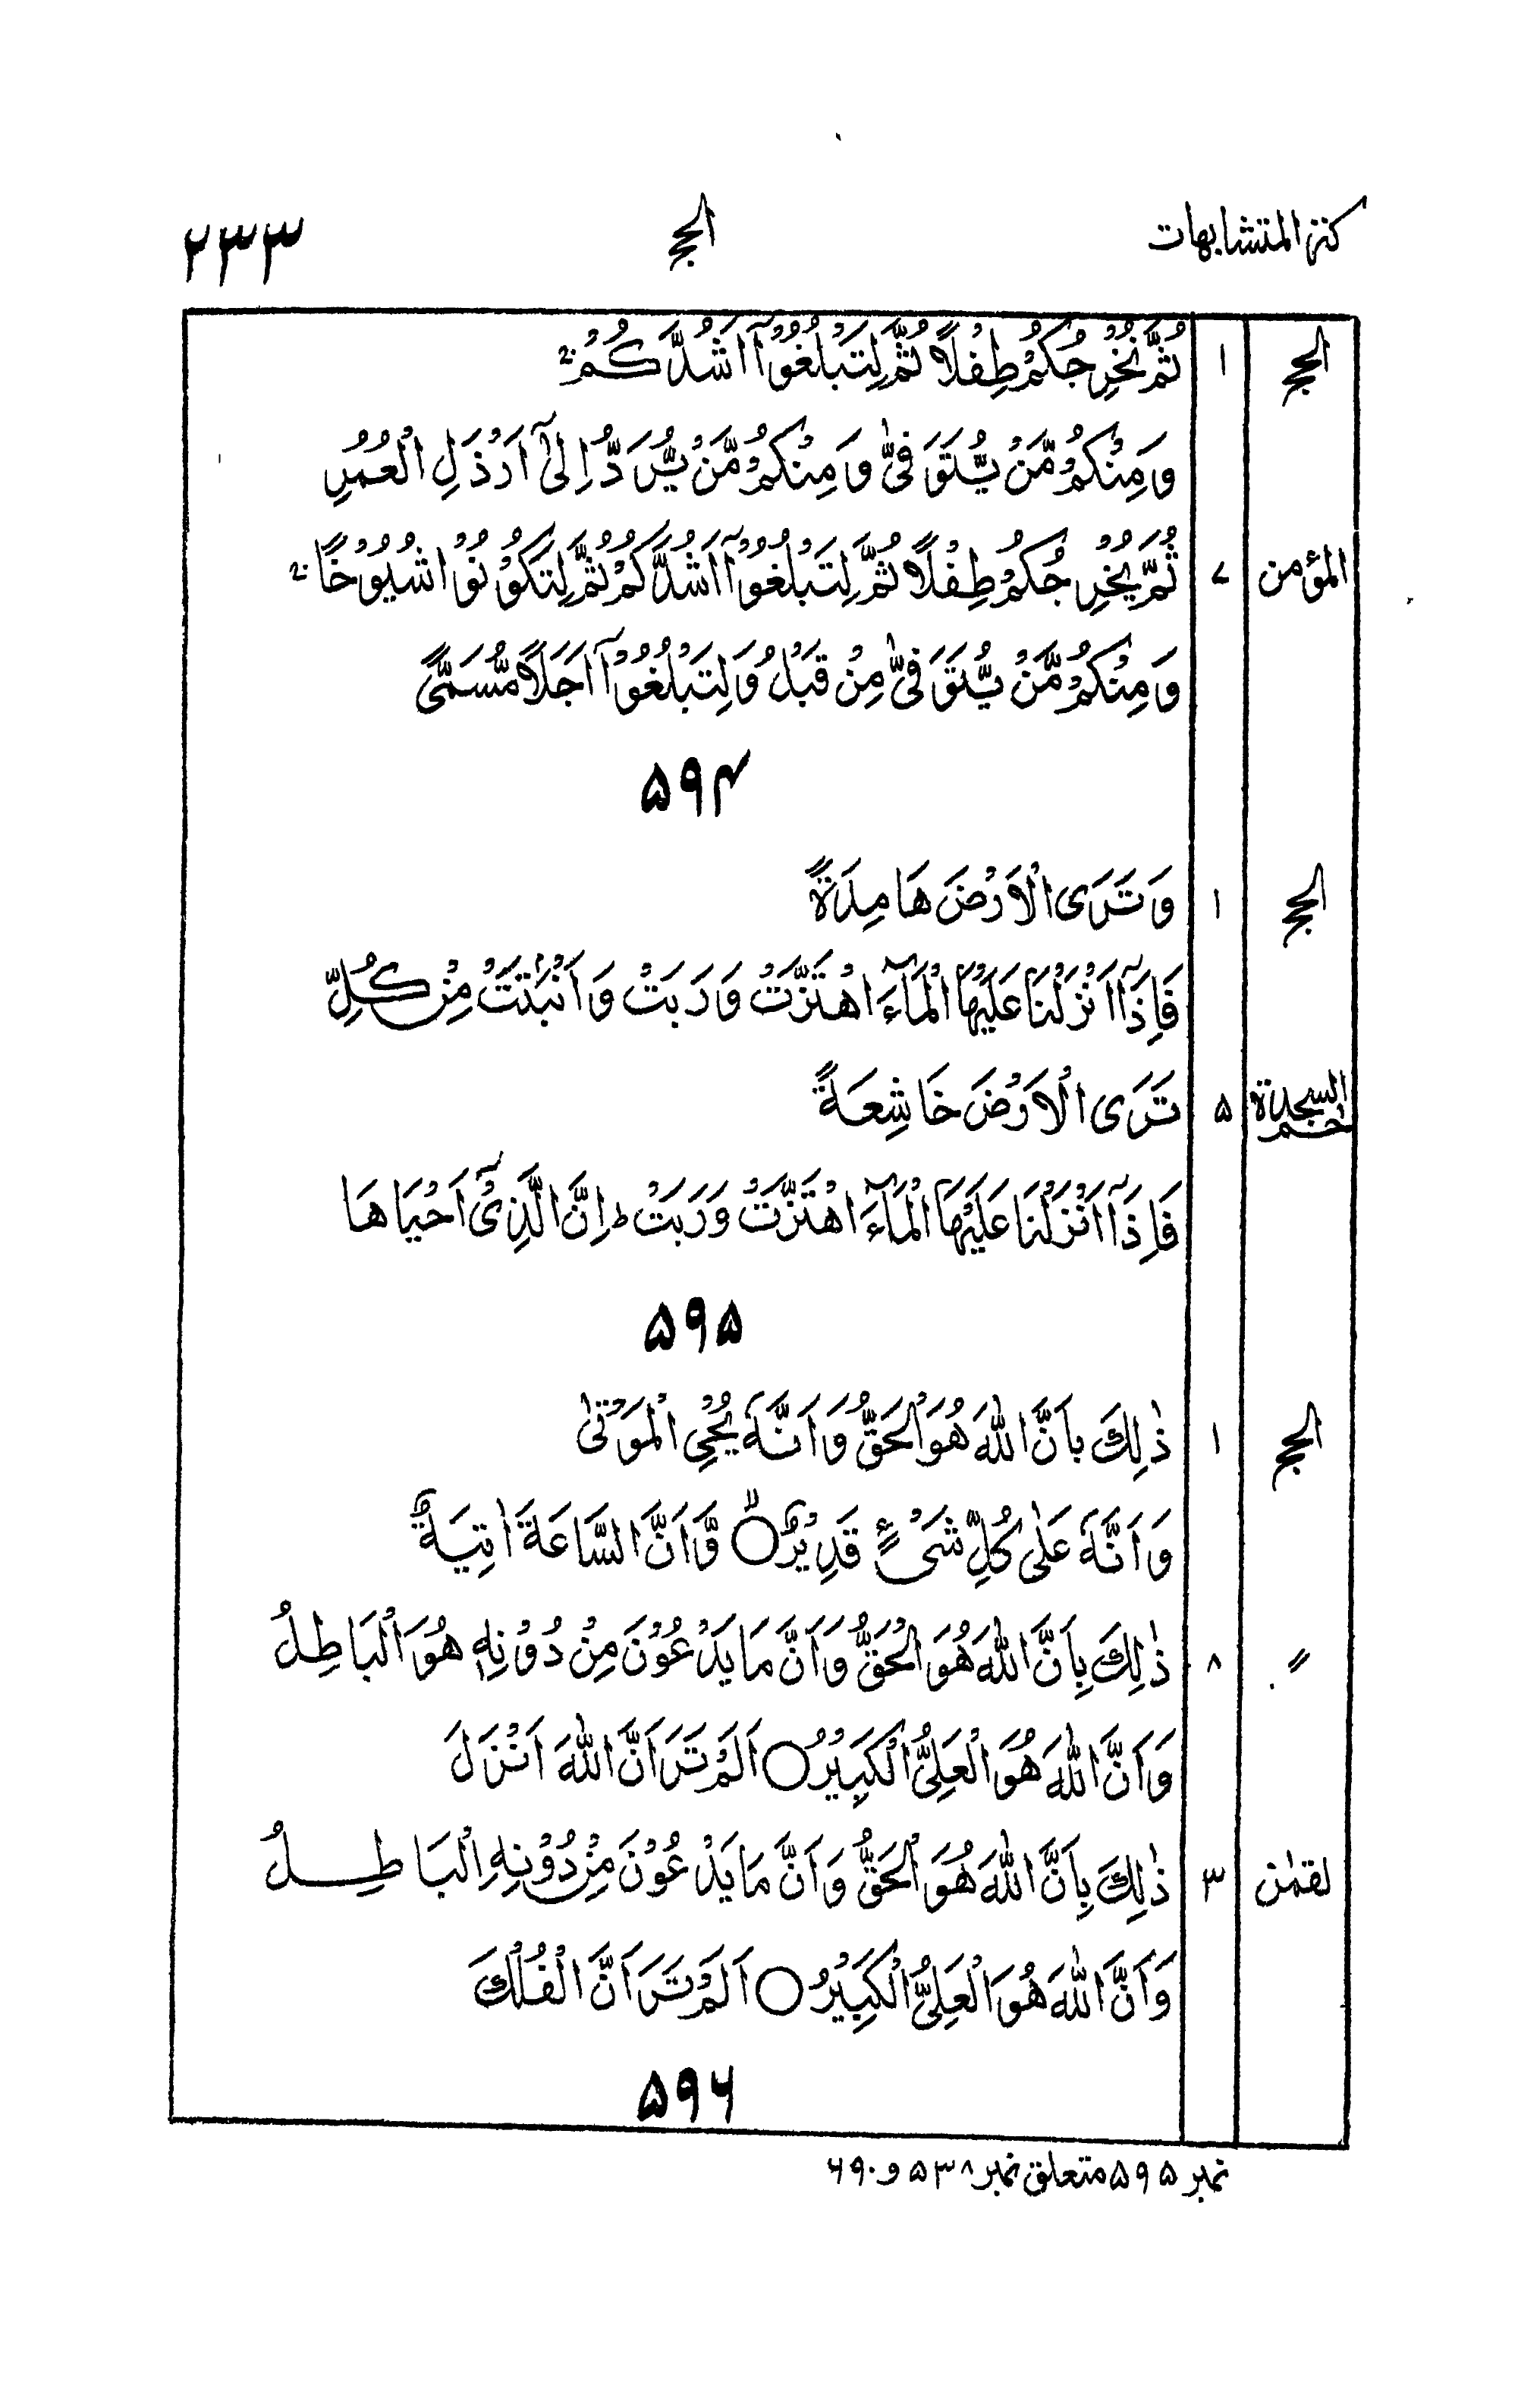 كنز المتشابهات الحج ٢٣٣
الحج ١ ثُمَّ نُخْرِجُكُمْ طِفْلًا ثُمَّ لِتَبْلُغُوْۤا اَشُدَّكُمْ ۚ
وَمِنْكُمْ مَّنْ يُّتَوَفّٰى وَمِنْكُمْ مَّنْ يُّرَدُّ اِلٰۤى اَرْذَلِ الْعُمُرِ
المؤمن ۷ ثُمَّ يُخْرِجُكُمْ طِفْلًا ثُمَّ لِتَبْلُغُوْۤا اَشُدَّكُمْ ثُمَّ لِتَكُوْنُوْا شُيُوْخًا ۚ
وَمِنْكُمْ مَّنْ يُّتَوَفّٰى مِنْ قَبْلُ وَلِتَبْلُغُوْۤا اَجَلًا مُّسَمًّى
۵۹۴
الحج ١ وَتَرَى الْاَرْضَ هَامِدَةً
فَاِذَاۤ اَنْزَلْنَا عَلَيْهَا الْمَآءَ اهْتَزَّتْ وَرَبَتْ وَاَنْۢبَتَتْ مِنْ كُلِّ
حٰم السجدة ۵ تَرَى الْاَرْضَ خَاشِعَةً
فَاِذَاۤ اَنْزَلْنَا عَلَيْهَا الْمَآءَ اهْتَزَّتْ وَرَبَتْ ؕ اِنَّ الَّذِيْۤ اَحْيَاهَا
۵۹۵
الحج ١ ذٰلِكَ بِاَنَّ اللّٰهَ هُوَ الْحَقُّ وَاَنَّهٗ يُحْيِ الْمَوْتٰى
وَاَنَّهٗ عَلٰى كُلِّ شَیْءٍ قَدِيْرٌ ○ ۙ وَّاَنَّ السَّاعَةَ اٰتِيَةٌ
〃 ۸ ذٰلِكَ بِاَنَّ اللّٰهَ هُوَ الْحَقُّ وَاَنَّ مَا يَدْعُوْنَ مِنْ دُوْنِهٖ هُوَ الْبَاطِلُ
وَاَنَّ اللّٰهَ هُوَ الْعَلِیُّ الْكَبِيْرُ ○ اَلَمْ تَرَ اَنَّ اللّٰهَ اَنْزَلَ
لقمٰن ۳ ذٰلِكَ بِاَنَّ اللّٰهَ هُوَ الْحَقُّ وَاَنَّ مَا يَدْعُوْنَ مِنْ دُوْنِهِ الْبَاطِلُ
وَاَنَّ اللّٰهَ هُوَ الْعَلِیُّ الْكَبِيْرُ ○ اَلَمْ تَرَ اَنَّ الْفُلْكَ
۵۹۶
نمبر ۵۹۵ متعلق نمبر ۵۳۸ و ۶۹۰